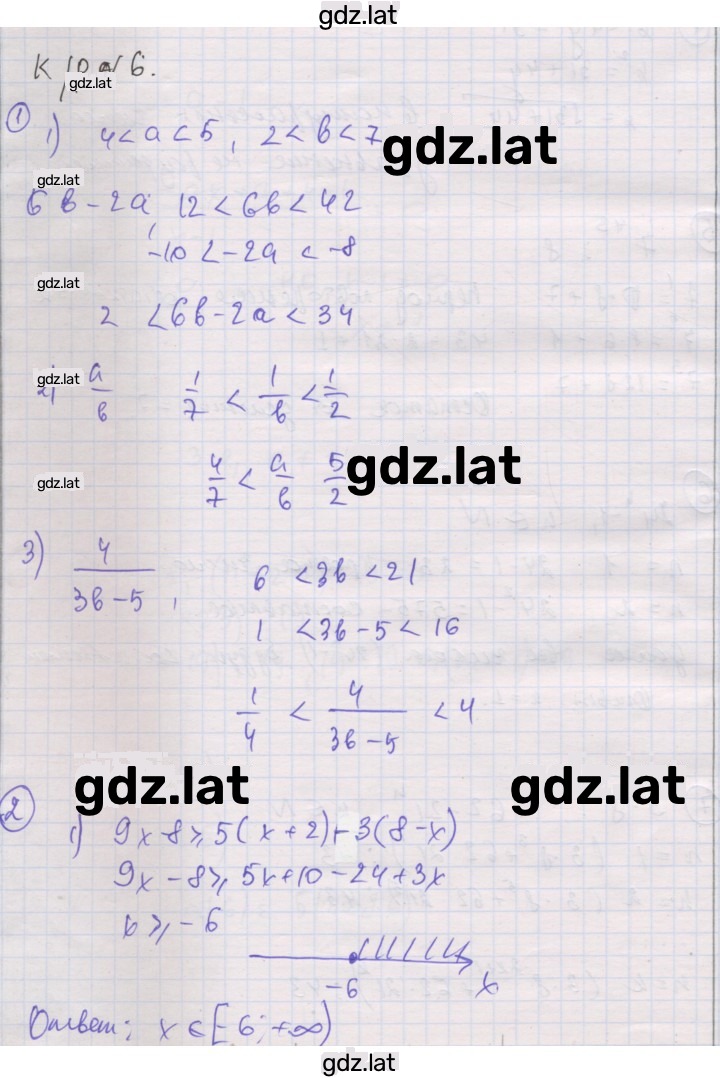 gdz.lat
К р № 6.
gdz.lat
① 1) 4 < a < 5, 2 < b < 7
gdz.lat
gdz.lat
6b - 2a, 12 < 6b < 42
-10 < -2a < -8
gdz.lat
2 < 6b - 2a < 34
gdz.lat
2) a/b 1/7 < 1/b < 1/2
gdz.lat
gdz.lat
4/7 < a/b 5/2
3) 4/(3b-5), 6 < 3b < 21
1 < 3b - 5 < 16
1/4 < 4/(3b-5) < 4
gdz.lat gdz.lat
② 1) 9x - 8 ≥ 5(x+2) - 3(8-x)
9x - 8 ≥ 5x + 10 - 24 + 3x
x ≥ -6
-6 x
Ответ: x ∈ [-6; +∞)
gdz.lat